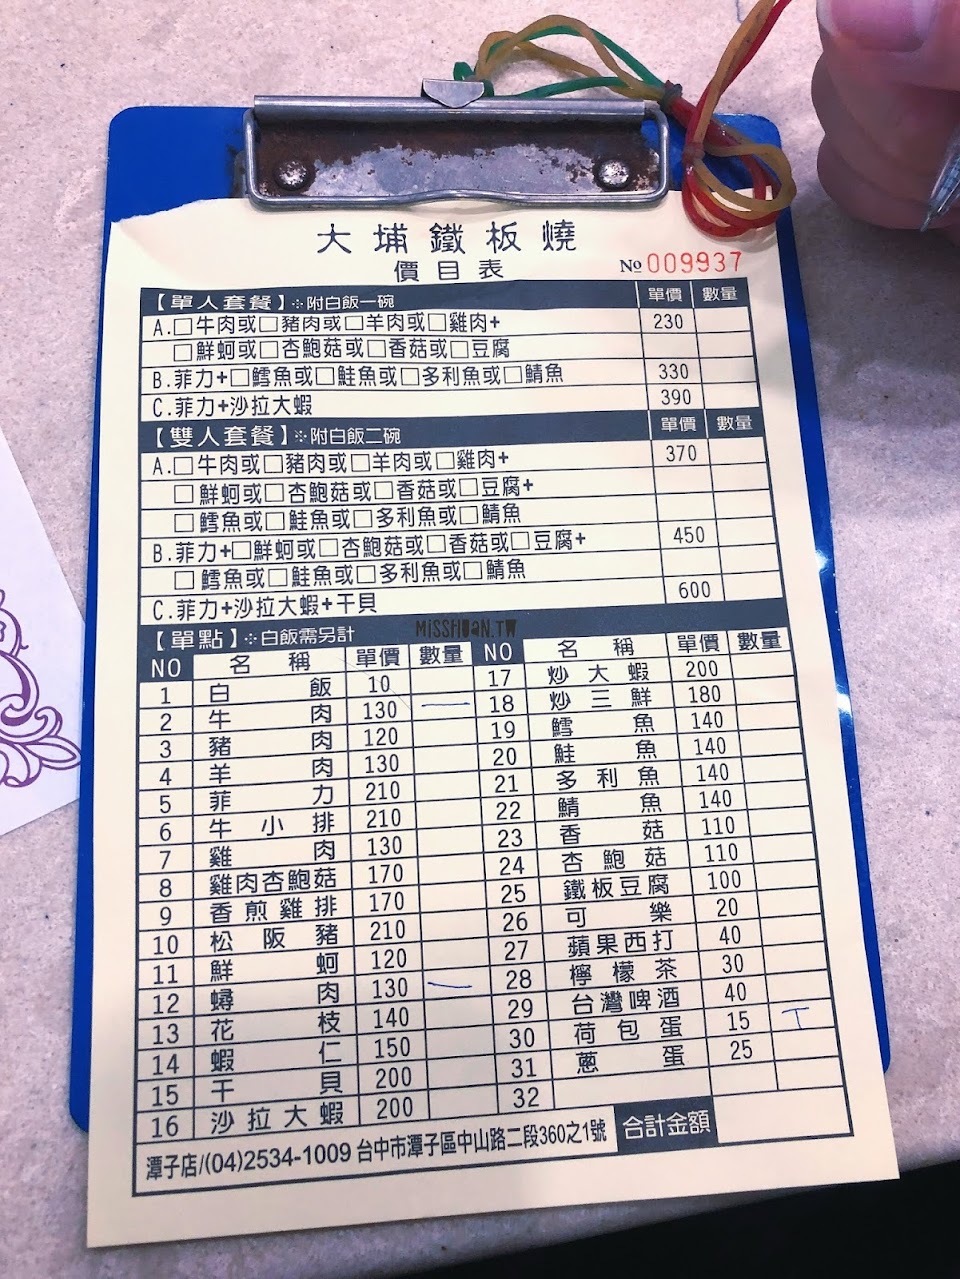 大埔鐵板燒
價目表
№ 009937
【單人套餐】※附白飯一碗 單價 數量
A.□牛肉或□豬肉或□羊肉或□雞肉+ 230
□鮮蚵或□杏鮑菇或□香菇或□豆腐
B.菲力+□鱈魚或□鮭魚或□多利魚或□鯖魚 330
C.菲力+沙拉大蝦 390
【雙人套餐】※附白飯二碗 單價 數量
A.□牛肉或□豬肉或□羊肉或□雞肉+ 370
□鮮蚵或□杏鮑菇或□香菇或□豆腐+
□鱈魚或□鮭魚或□多利魚或□鯖魚
B.菲力+□鮮蚵或□杏鮑菇或□香菇或□豆腐+ 450
□鱈魚或□鮭魚或□多利魚或□鯖魚
C.菲力+沙拉大蝦+干貝 600
【單點】※白飯需另計
MISSHUAN.TW
NO 名稱 單價 數量
1 白飯 10
2 牛肉 130 一
3 豬肉 120
4 羊肉 130
5 菲力 210
6 牛小排 210
7 雞肉 130
8 雞肉杏鮑菇 170
9 香煎雞排 170
10 松阪豬 210
11 鮮蚵 120
12 蟳肉 130 一
13 花枝 140
14 蝦仁 150
15 干貝 200
16 沙拉大蝦 200
NO 名稱 單價 數量
17 炒大蝦 200
18 炒三鮮 180
19 鱈魚 140
20 鮭魚 140
21 多利魚 140
22 鯖魚 140
23 香菇 110
24 杏鮑菇 110
25 鐵板豆腐 100
26 可樂 20
27 蘋果西打 40
28 檸檬茶 30
29 台灣啤酒 40
30 荷包蛋 15 T
31 蔥蛋 25
32
合計金額
潭子店/(04)2534-1009 台中市潭子區中山路二段360之1號